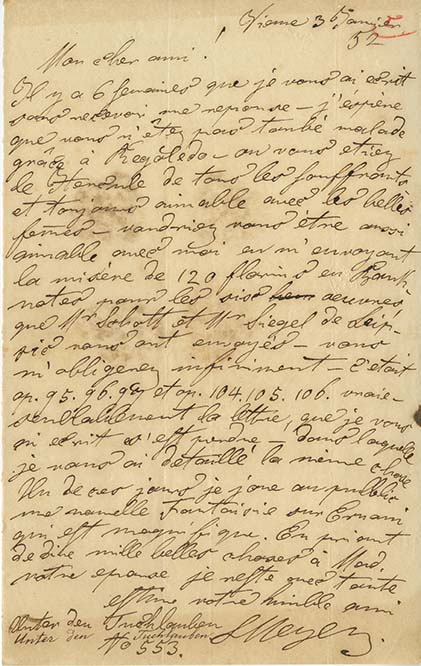 Vienne 3 Janvier
52
Mon cher ami.
Il y a 6 semaines que je vous ai ecrit
sans recevoir une reponse – j'éspère
que vous n'êtez pas tombé malade
grâce a Regoledo – ou vous etiez
de tous les souffrants
et toujours aimable avec les belles
femes – voudriez vous être aussi
aimable avec moi en m'envoyant
la misére de 120 florins en Bank-
notes pour les six oeuvres
que Mr Schott et Mr Siegel de Leip-
sic vous ont envoyés – vous
m'obligerez infiniment – c'etait
op. 95. 96. 97 et op. 104. 105. 106. vraie-
semblablement la lettre, que je vous
ai ecrit s'est perdue – dans laquelle
je vous ai detaillé la même chose
Un de ces jours je joue au publico
une nouvelle Fantaisie sur Ernani
qui est magnifique. En priant
de dire mille belles choses à Mad.
votre epouse je reste avec toute
estime votre humble ami
Unter den Tuchlauben
Unter den Tuchlauben
No 553.
LMeyer